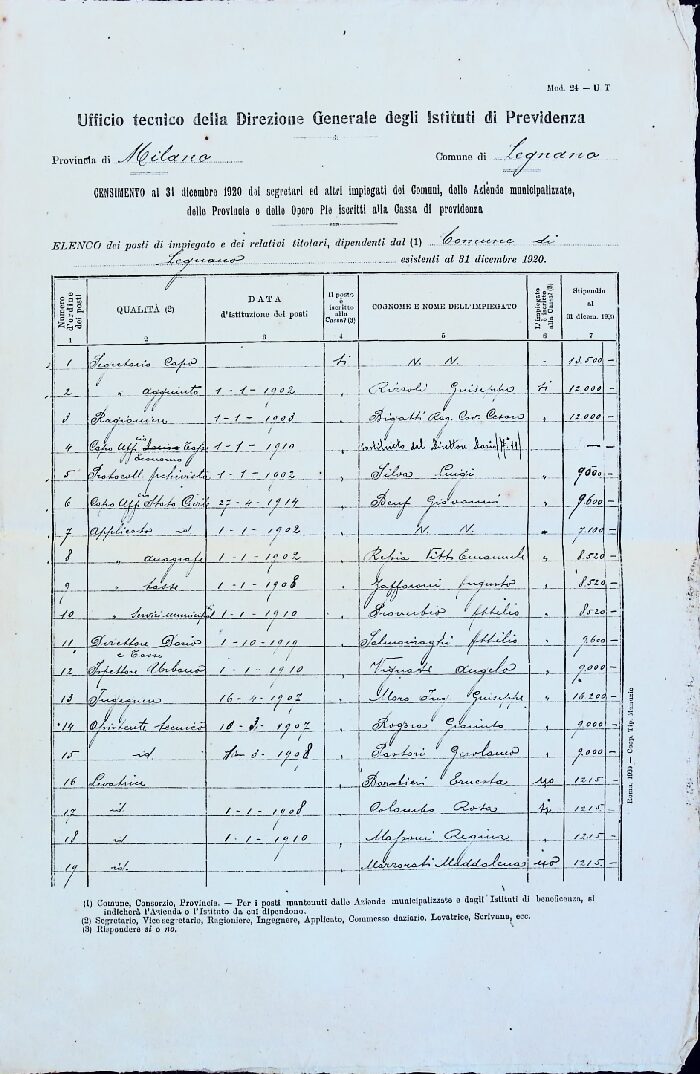 Mod. 24 — U T
Ufficio tecnico della Direzione Generale degli Istituti di Previdenza
Provincia di Milano Comune di Legnano
CENSIMENTO al 31 dicembre 1920 dei segretari ed altri impiegati dei Comuni, delle Aziende municipalizzate,
delle Provincie e delle Opere Pie iscritti alla Cassa di previdenza
ELENCO dei posti di impiegato e dei relativi titolari, dipendenti dal (1) Comune di
Legnano esistenti al 31 dicembre 1920.
Numero d'ordine dei posti QUALITÀ (2) DATA d'istituzione dei posti Il posto è iscritto alla Cassa? (3) COGNOME E NOME DELL'IMPIEGATO L'impiegato è iscritto alla Cassa? (3) Stipendio al 31 dicem. 1920
1 2 3 4 5 6 7
1 Segretario Capo si N. N. - 13.500 —
2 " aggiunto 1-1-1902 " Giuseppe si 12.000 —
3 Ragioniere 1-1-1903 " Bigatti Rag. Cav. Cesare " 12.000 —
4 Capo Uff. Economo 1-1-1910 " sostituito dal Direttore Dazio — —
5 Protocoll. Archivista 1-1-1902 " Silva Luigi " 9000 —
6 Capo Uff. Stato Civile 27-4-1914 " Giovanni " 9.600 —
7 Applicato id 1-1-1902 " N. N. " 7.100 —
8 " anagrafe 1-1-1902 " Vitt. Emanuele " 8.520 —
9 " tasse 1-1-1908 " Augusto " 8.520 —
10 " Servizi municipali 1-1-1910 " Proverbio Attilio " 8520 —
11 Direttore Dazio e Tasse 1-10-1919 " Salmoiraghi Attilio " 9.600 —
12 Ispettore Urbano 1-1-1910 " Angelo " 9.000 —
13 Ingegnere 16-4-1907 " Moro Ing. Giuseppe " 16.200 —
14 Assistente tecnico 10-3-1907 " Giacinto " 9.000 —
15 id. 1-3-1908 " Sartori Gerolamo " 9.000 —
16 Levatrice Barbieri Ernesta no 1215 —
17 id 1-1-1908 " Colombo Rosa si 1215 —
18 id 1-1-1910 " Massoni Regina " 1215 —
19 id. Marzorati Maddalena no 1215 —
(1) Comune, Consorzio, Provincia. — Per i posti mantenuti dalle Aziende municipalizzate e dagli Istituti di beneficenza, si
indicherà l'Azienda o l'Istituto da cui dipendono.
(2) Segretario, Vice segretario, Ragioniere, Ingegnere, Applicato, Commesso daziario, Levatrice, Scrivano, ecc.
(3) Rispondere si o no.